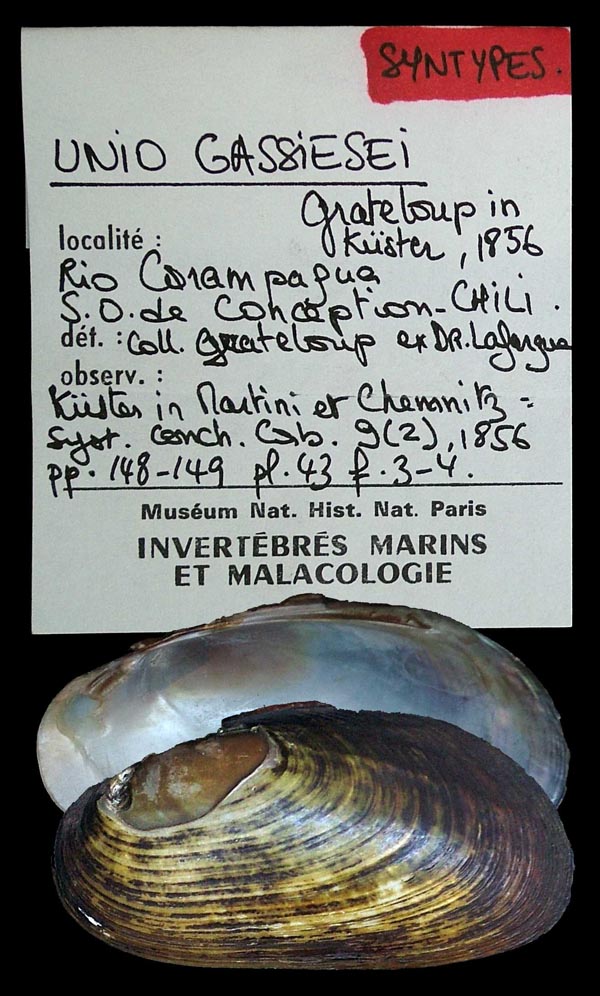 SYNTYPES.
UNIO GASSIESEI
Grateloup in
Küster, 1856
localité :
Rio Corampagua
S.O. de Conception - CHILI.
dét. : Coll. Grateloup ex DR. Lafargue
observ. :
Küster in Martini et Chemnitz =
Syst. Conch. Cab. 9(2), 1856
pp. 148-149 pl. 43 f. 3-4.
Muséum Nat. Hist. Nat. Paris
INVERTÉBRÉS MARINS
ET MALACOLOGIE